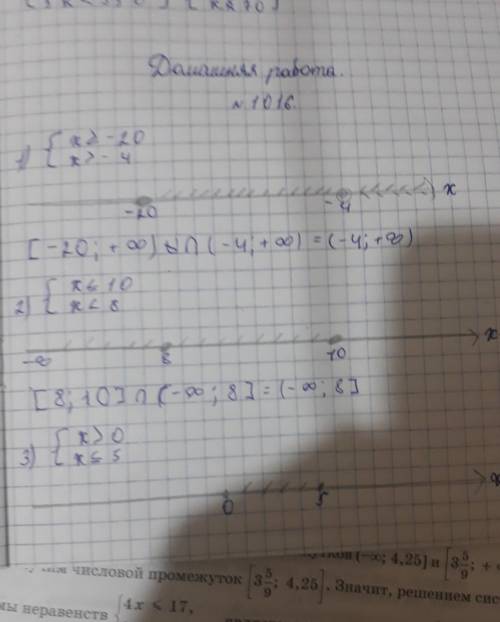 Домашняя работа.
№ 1016.
1) { x ≥ -20
x > -4
-20 -4 x
[-20; +∞) ∩ (-4; +∞) = (-4; +∞)
2) { x ≤ 10
x < 8
-∞ 8 10 x
[8; 10] ∩ (-∞; 8] = (-∞; 8]
3) { x > 0
x ≤ 5
0 5 x
(-∞; 4,25] и [3 5/9; +
числовой промежуток [3 5/9; 4,25]. Значит, решением сис
мы неравенств { 4x ⩽ 17,